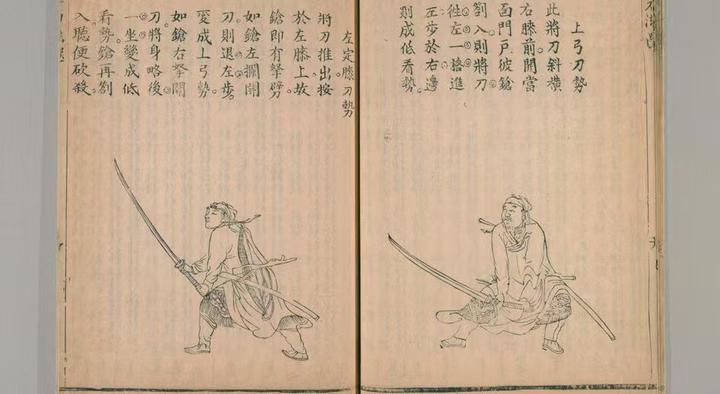 上弓刀勢
此將刀斜橫
右膝前開當
面門戶彼鎗
劄入則將刀
徃左一進
左步於右邊
則成低看勢
左定膝刀勢
將刀推出按
於左膝上故
鎗即有拏
如鎗左攔開
刀則退左步
變成上弓勢
如鎗右拏開
刀將身略後
一坐變成低
看勢鎗再劄
入聽便砍殺